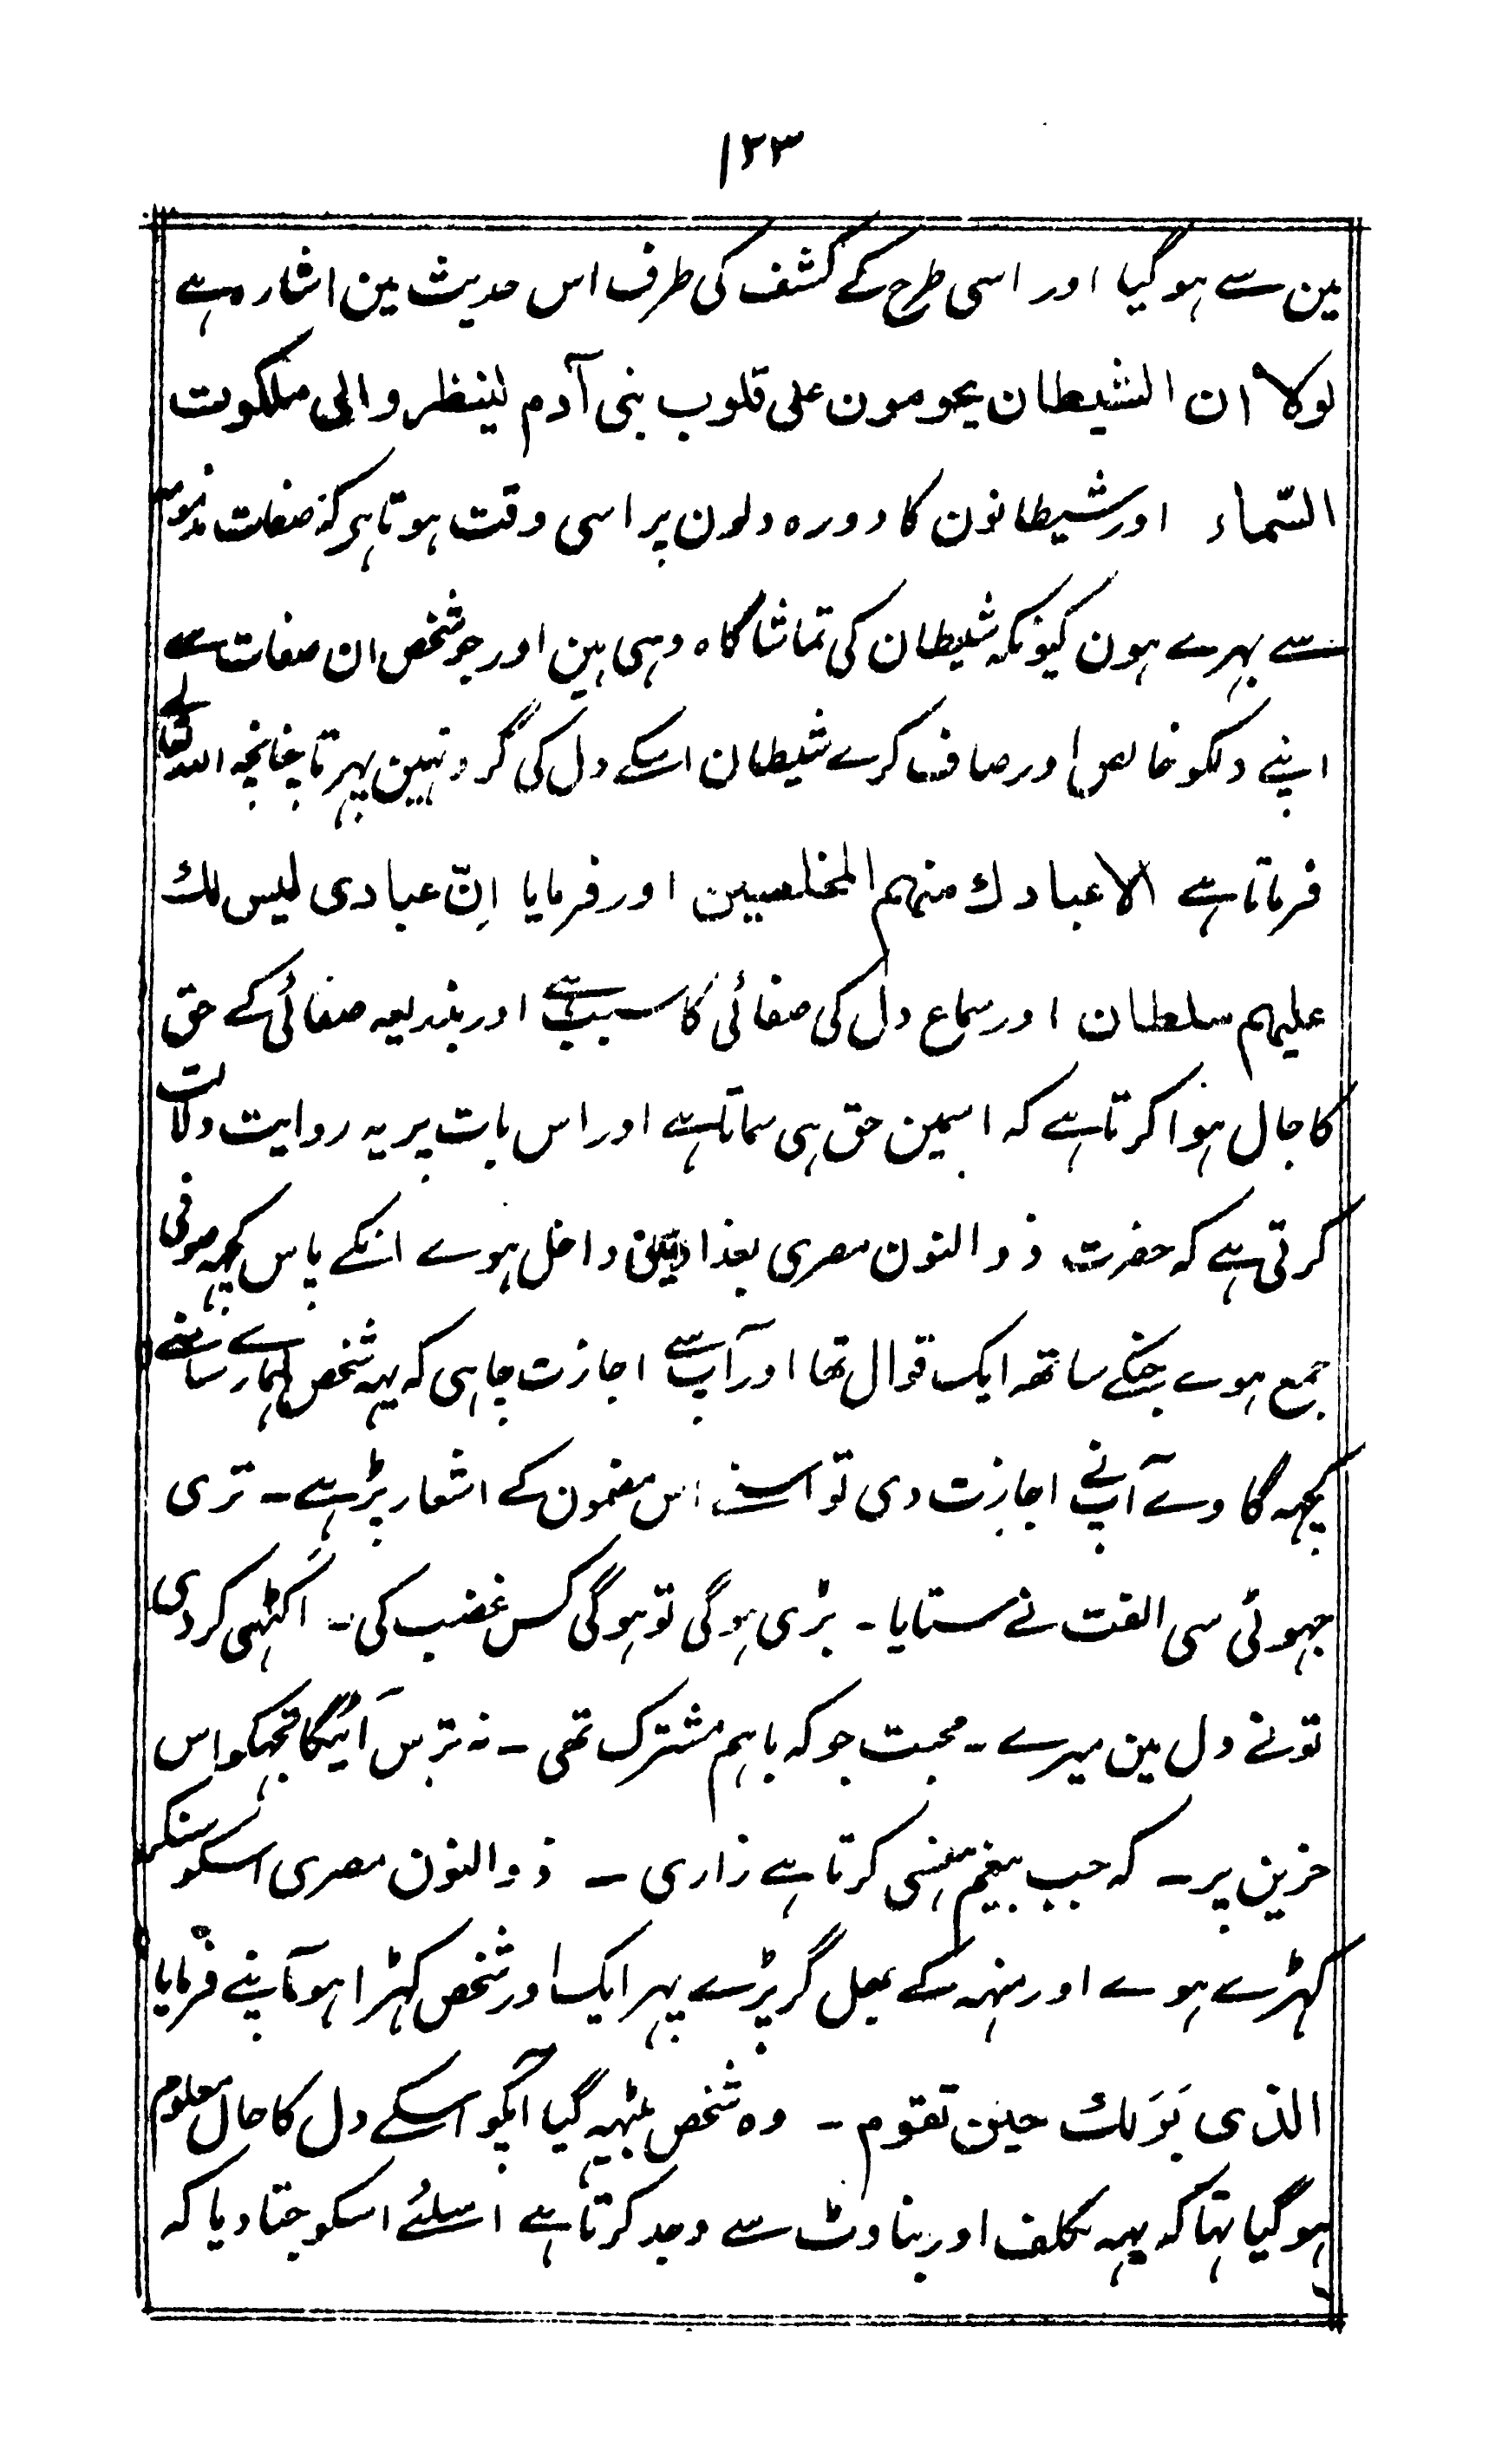 ۱۲۳
مین سے ہو گیا اور اسی طرح کے کشف کی طرف اس حدیث مین اشارہ ہے
لولا ان الشیطان یحومون علی قلوب بنی آدم لینظر و الی ملکوت
السّماء اور شیطانون کا دورہ دلون پر اسی وقت ہوتا ہر کہ صفات مذمومہ
سے بہرے ہون کیونکہ شیطان کی تماشا گاہ وہی ہین اور جو شخص ان صفات سے
اپنے دلکو خالص اور صاف کرے شیطان اسکے دل کی گرد نہین پہرتا چنانچہ اللہ تعالے
فرماتا ہے الا عبادك منہم المخلصین اور فرمایا اِنّ عبادی لیس لك
علیہم سلطان اور سماع دل کی صفائی کا سبب ہے اور بذریعہ صفائی کے حق
کا جال ہوا کرتا ہے کہ اسمین حق ہی سماتا ہے اور اس بات پر یہ روایت دلالت
کرتی ہے کہ حضرت ذو النون مصری بغداد مین داخل ہوے انکے پاس کچہہ صوفی
جمع ہوے جنکے ساتھ ایک قوال تھا اور آپ سے اجازت چاہی کہ یہہ شخص ہمارے سامنے
کچہہ گاوے آپنے اجازت دی تو اسنے اس مضمون کے اشعار پڑہے ۔ تری
چہوٹی سی الفت نے ستایا ۔ بڑی ہوگی تو ہوگی کس غضب کی ۔ اکٹہی کر دی
تونے دل مین میرے ۔ محبت جو کہ باہم مشترک تھی ۔ نہ ترس آئیگا تجہکو اس
حزین پر ۔ کہ جب بیغم ہنسی کرتا ہے زاری ۔ ذو النون مصری اسکو سنکر
کہڑے ہوے اور منہہ کے بھل گر پڑے پہر ایک اور شخص کہڑا ہوا آپنے فرمایا
الذی یَرَىك حین تقوم ۔ وہ شخص بیٹہہ گیا آپکو اسکے دل کا حال معلوم
ہو گیا تہا کہ یہہ تکلف اور بناوٹ سے وجد کرتا ہے اسلئے اسکو جتا دیا کہ